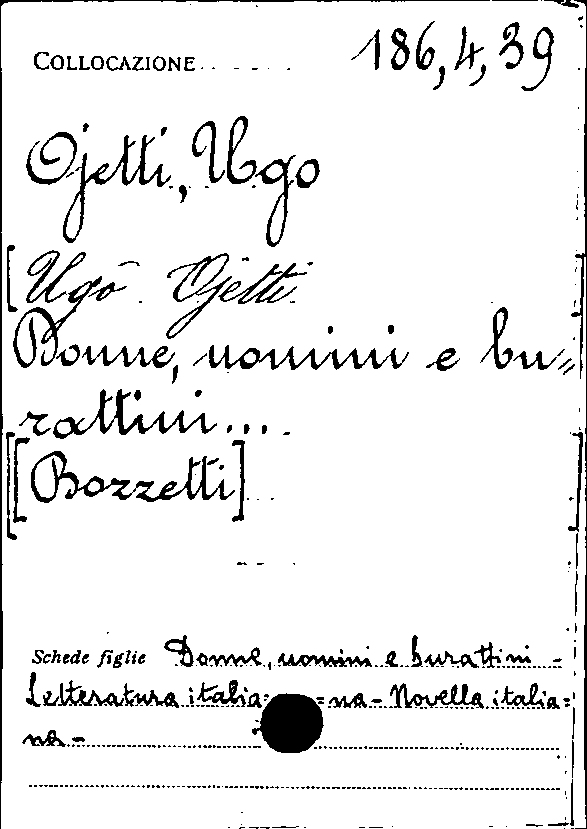 COLLOCAZIONE 186,4,39
Ojetti, Ugo
[Ugo Ojetti.]
Donne, uomini e bu=
rattini...
[Bozzetti]
Schede figlie Donne, uomini e burattini -
Letteratura italia= =na - Novella italia=
na -